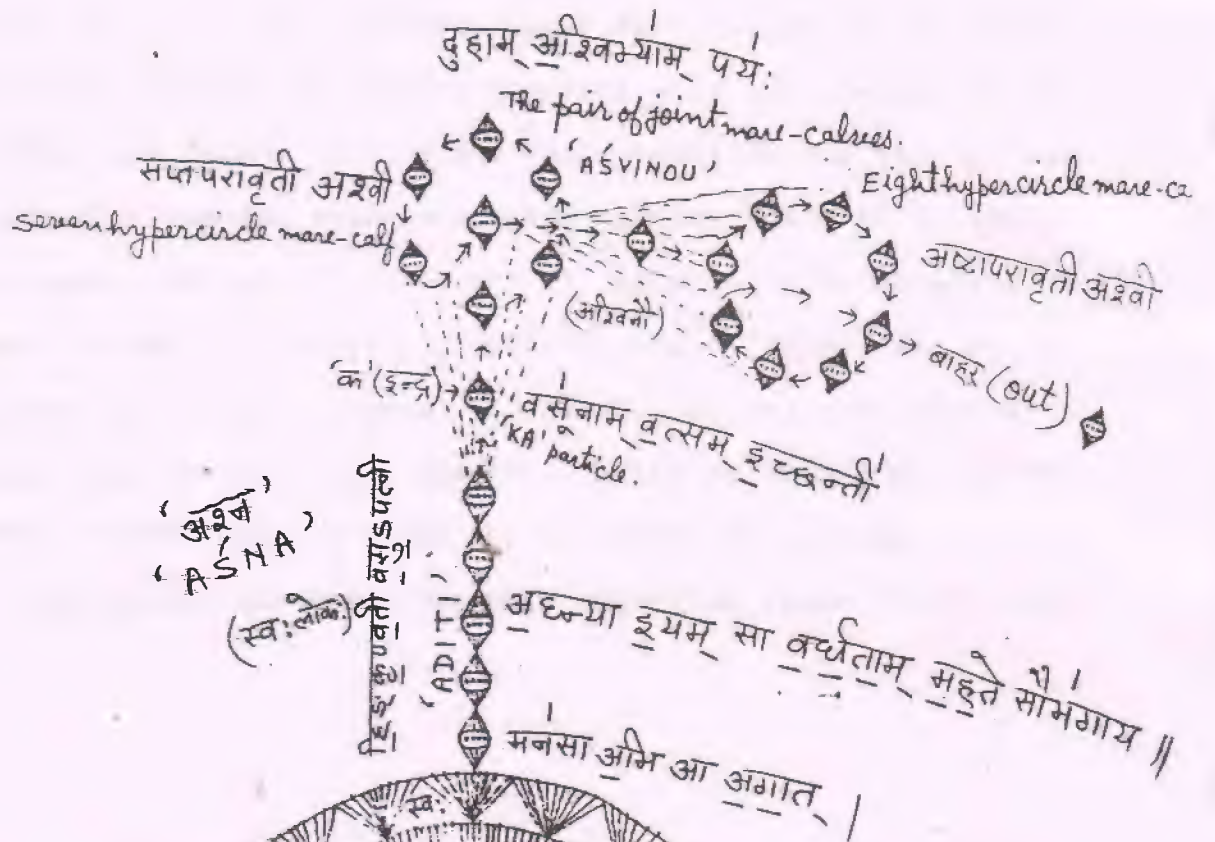 दुहाम् अश्विभ्याम् पयः
The pair of joint mare-calsees.
'AŚVINOU'
सप्तपरावृती अश्वी
Seven hypercircle mare-calf
Eight hypercircle mare-ca
अष्टापरावृती अश्वी
(अश्विनौ)
बाहर (out)
'क' (इन्द्र)
वसूनाम् वत्सम् इच्छन्ती
'KA' particle.
'अश्न'
'AŚNA'
(स्वःलोक)
वसुऽपत्नी
'ADITI'
अघ्न्या इयम् सा वर्धताम् महते सौभगाय ॥
मनसा अभि आ अगात् |
स्वः